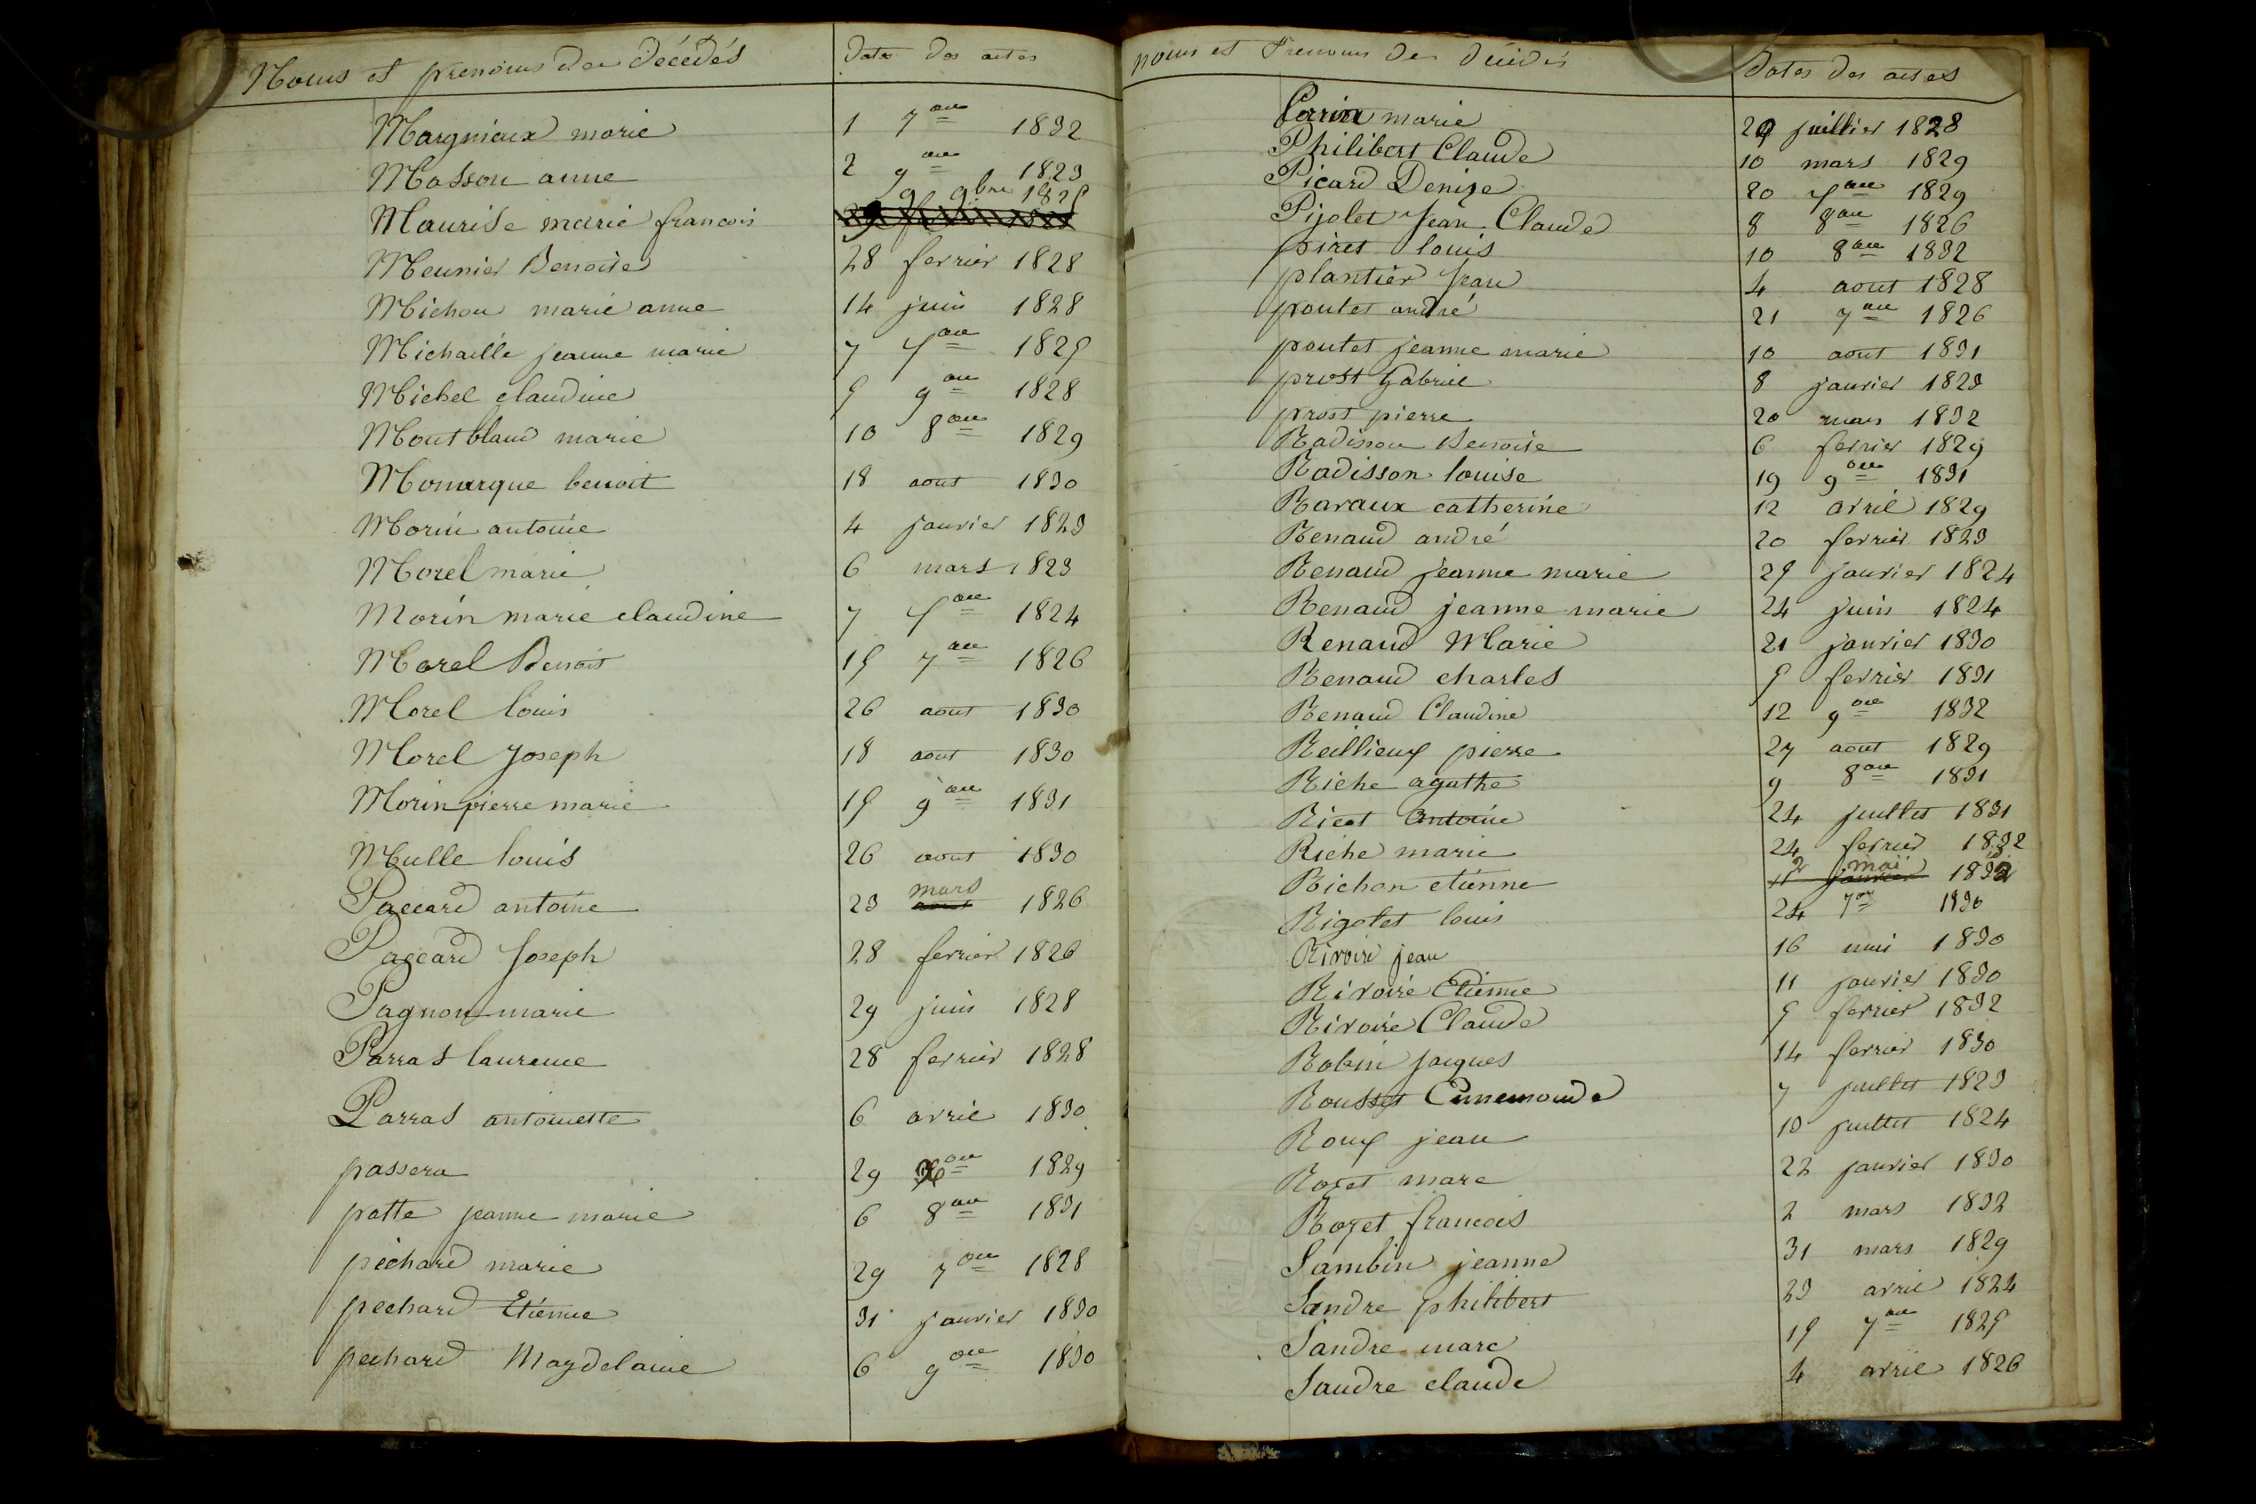 Noms et prenoms des décédés
Dates des actes
Margniaux marie 1 7bre 1832
Masson anne 2 9bre 1823
9 9bre 1825
Maurise marie francois
Meunier Benoite 28 fevrier 1828
Michon marie anne 14 juin 1828
Michaille jeanne marie 7 Xbre 1825
Michel claudine 5 9bre 1828
Montbland marie 10 8bre 1829
Monarque benoit 18 aout 1830
Morin antoine 4 janvier 1823
Morel marie 6 mars 1823
Morin marie claudine 7 Xbre 1824
Morel Benoit 15 7bre 1826
Morel louis 26 aout 1830
Morel Joseph 18 aout 1830
Morin pierre marie 15 9bre 1831
Mulle louis 26 aout 1830
Paccard antoine 23 mars 1826
Paccard Joseph 28 fevrier 1826
Pagnon marie 29 juin 1828
Parras laurence 28 fevrier 1828
Parras antoinette 6 avril 1830
passera 29 1829
patte jeanne marie 6 8bre 1831
péchard marie 29 7bre 1828
pechard Etienne 31 janvier 1830
pechard Magdelaine 6 9bre 1830
noms et Prenoms des décédés
Dates des actes
Perrin marie 29 juillier 1828
Philibert Claude 10 mars 1829
Picard Denize 20 Xbre 1829
Pijolet Jean Claude 8 8bre 1826
piret louis 10 8bre 1832
plantier Jean 4 aout 1828
poutet andré 21 7bre 1826
poutet jeanne marie 10 aout 1831
prost gabriel 8 janvier 1823
prost pierre 20 mars 1832
Radisson Benoite 6 fevrier 1829
Radisson louise 19 9bre 1831
Ravaux catherine 12 avril 1829
Renaud andré 20 fevrier 1823
Renaud jeanne marie 25 janvier 1824
Renaud jeanne marie 24 juin 1824
Renaud Marie 21 janvier 1830
Renaud charles 5 fevrier 1831
Renaud Claudine 12 9bre 1832
Reillieux pierre 27 aout 1829
Riche agathe 9 8bre 1831
Ricot antoine 24 juillet 1831
Riche marie 24 fevrier 1832
Richon etienne 2 mai 1832
Rigolet louis 24 7bre 1830
Rivoire jean 16 mai 1830
Rivoire Etienne 11 janvier 1830
Rivoire Claude 5 fevrier 1832
Robin jacques 14 fevrier 1830
Rousset Ennemonde 7 juillet 1823
Roux jean 10 juillet 1824
Rozet marc 22 janvier 1830
Rozet francois 2 mars 1832
Sambin jeanne 31 mars 1829
Sandre philibert 23 avril 1824
Sandre marc 15 7bre 1825
Sandre claude 4 avril 1826